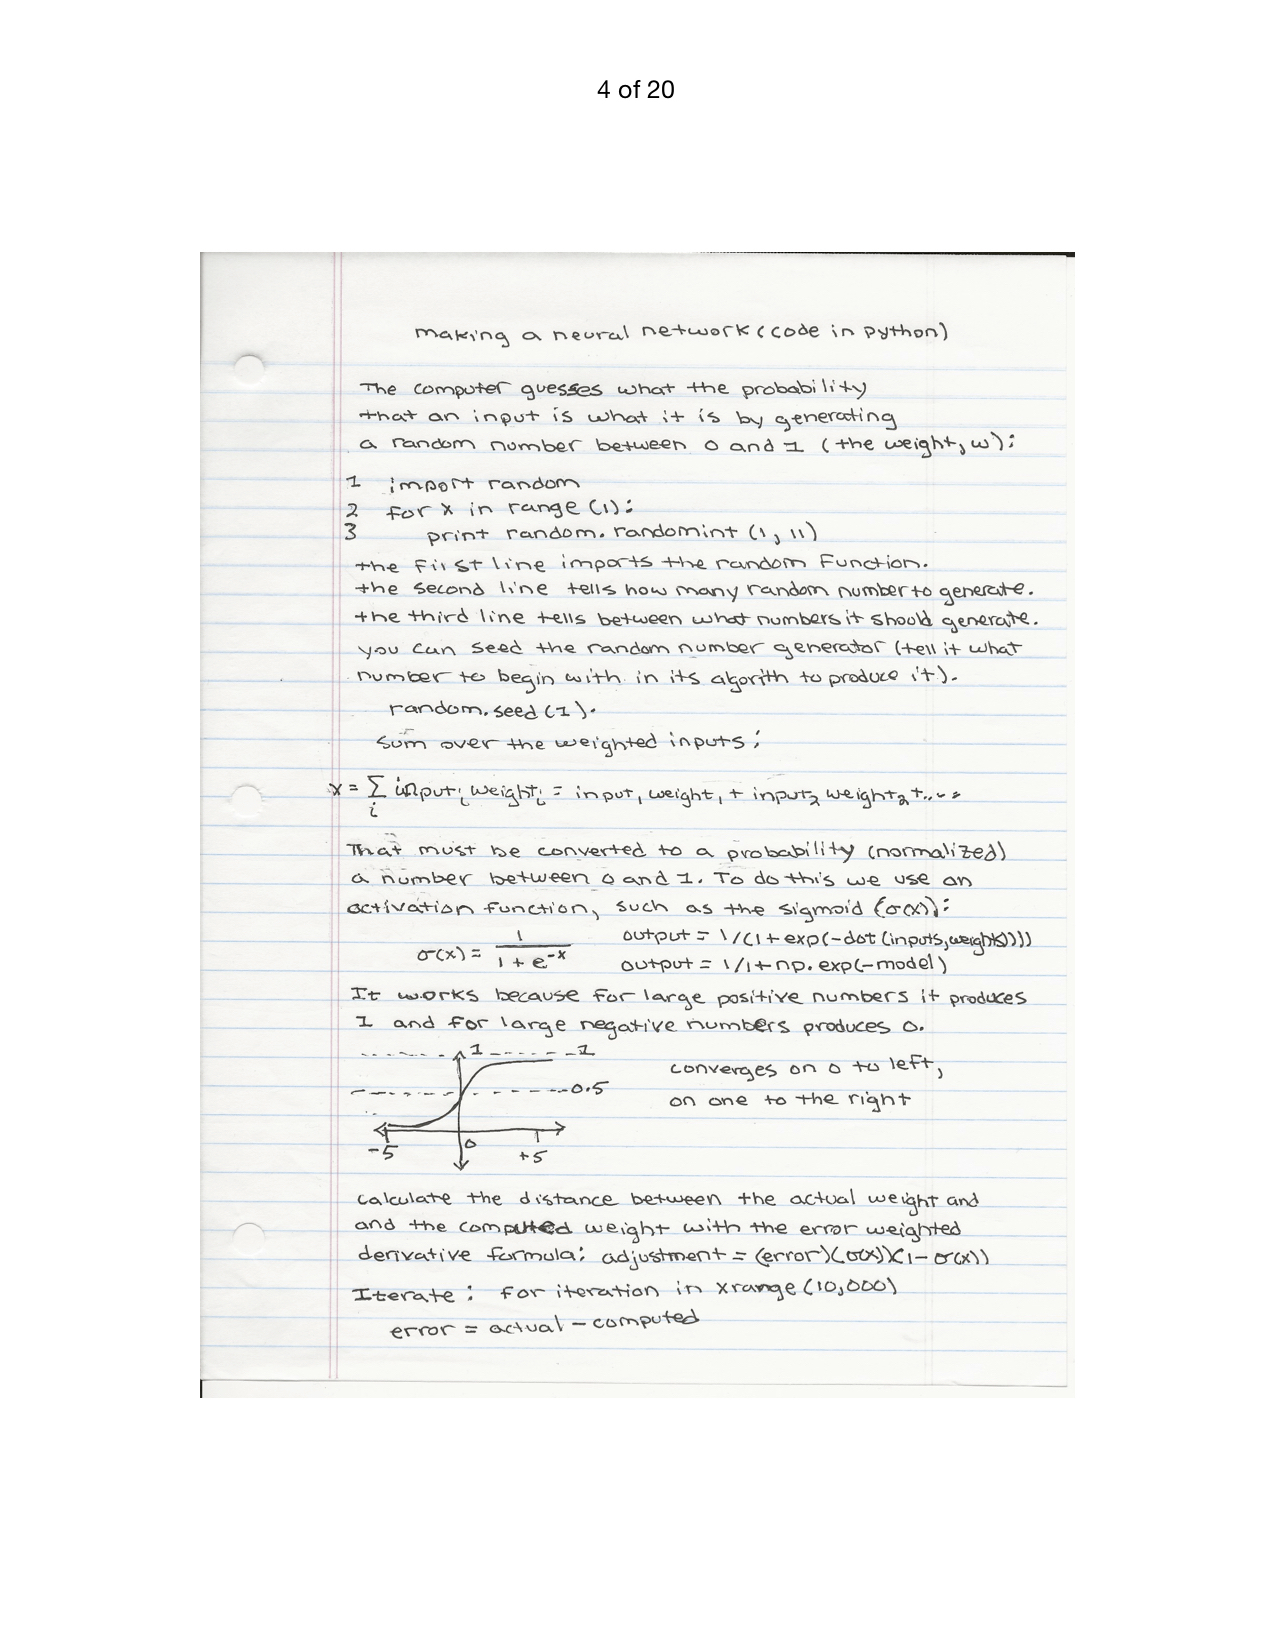 4 of 20
making a neural network (code in python)
The computer guesses what the probability
that an input is what it is by generating
a random number between 0 and 1 (the weight, w):
1 import random
2 for x in range (1):
3 print random. randomint (1, 11)
the first line imports the random Function.
the second line tells how many random number to generate.
the third line tells between what numbers it should generate.
you can seed the random number generator (tell it what
number to begin with in its algorith to produce it).
random.seed(1).
sum over the weighted inputs:
x = ∑ᵢ inputᵢ weightᵢ = input₁ weight₁ + input₂ weight₂ + ....
That must be converted to a probability (normalized)
a number between 0 and 1. To do this we use an
activation function, such as the sigmoid (σ(x)):
σ(x) = 1 / (1 + e^-x) output = 1/(1+exp(-dot(inputs,weights))))
output = 1/1+np.exp(-model)
It works because for large positive numbers it produces
1 and for large negative numbers produces 0.
1 1
0.5
-5 0 +5
converges on 0 to left,
on one to the right
calculate the distance between the actual weight and
and the computed weight with the error weighted
derivative formula: adjustment = (error)(σ(x))(1-σ(x))
Iterate: for iteration in xrange(10,000)
error = actual - computed